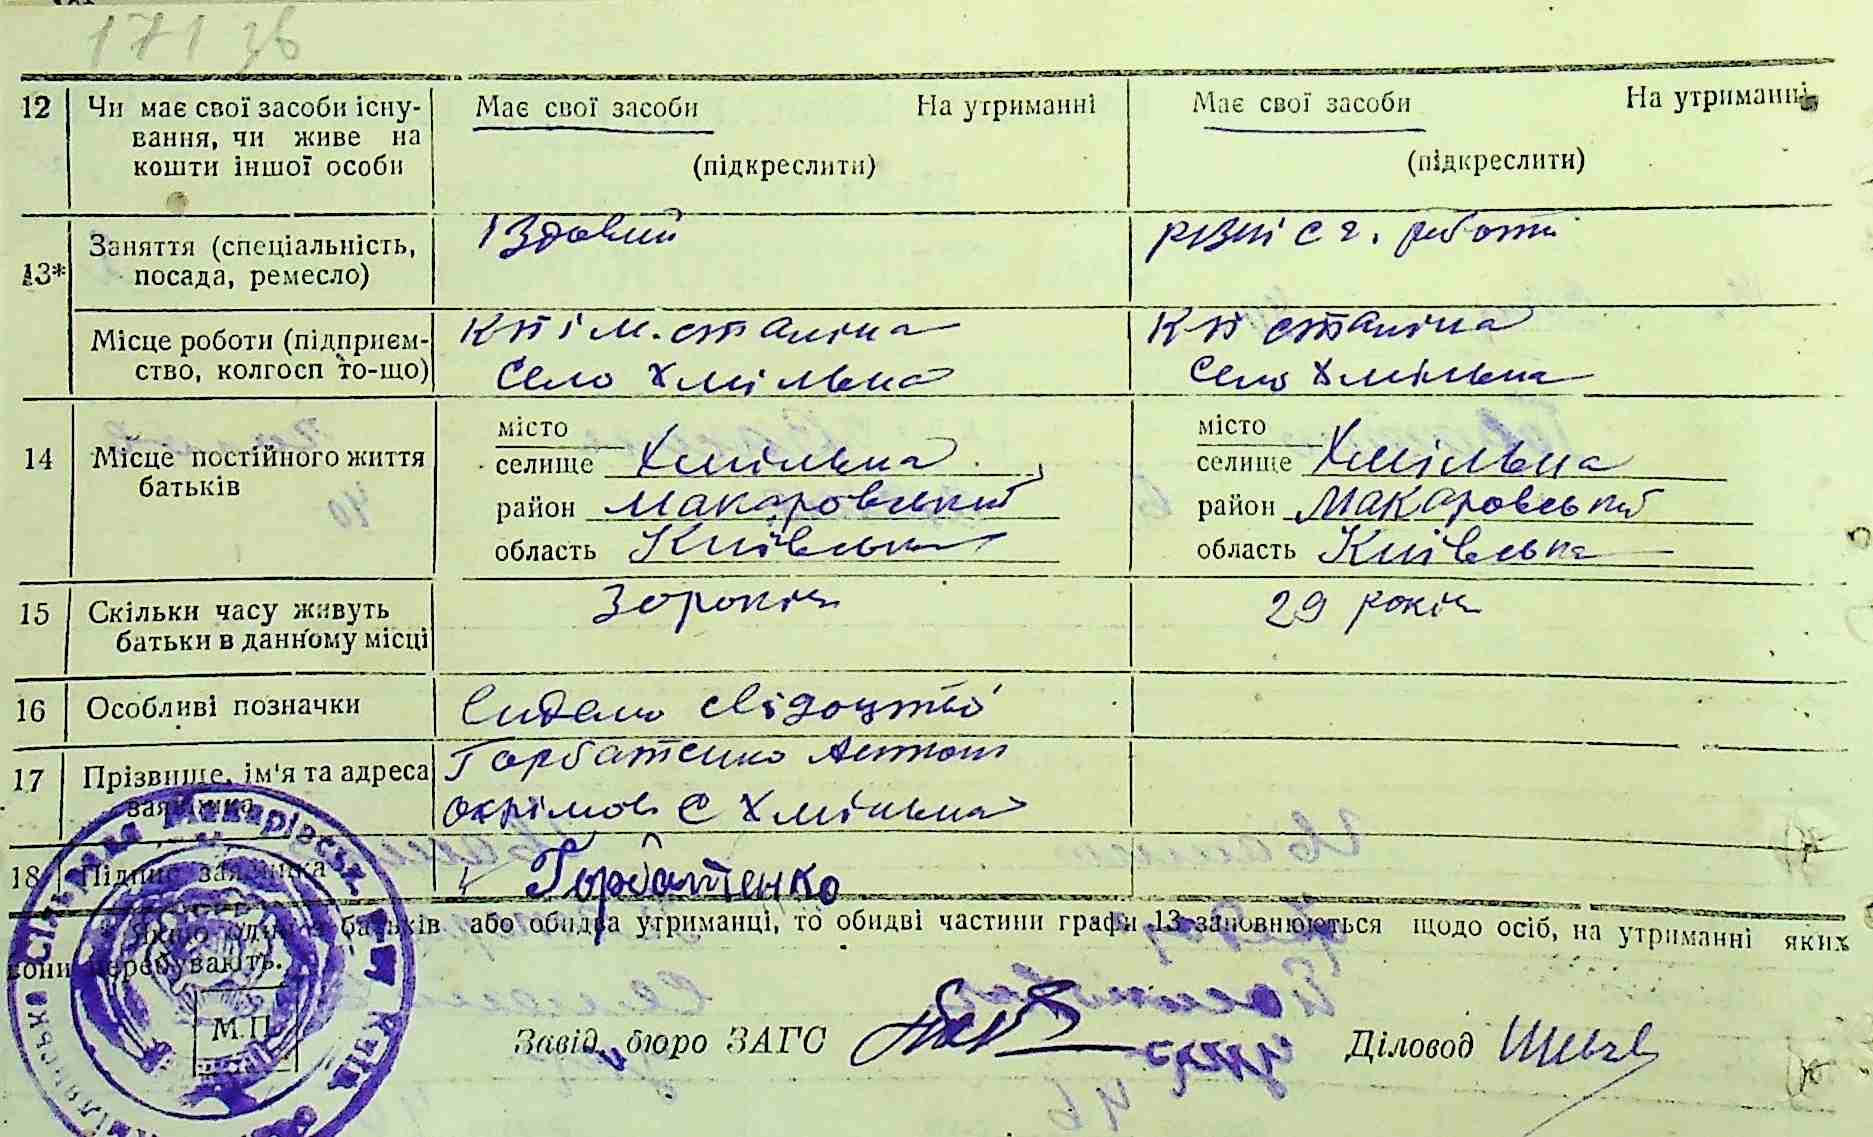 171 зв
12 Чи має свої засоби існу-
вання, чи живе на
кошти іншої особи
Має свої засоби На утриманні
(підкреслити)
Має свої засоби На утриманні
(підкреслити)
13* Заняття (спеціальність,
посада, ремесло)
Їздовий
різні с г. роботи
Місце роботи (підприєм-
ство, колгосп то-що)
ім. сталіна
Село Хмільна
сталіна
Село Хмільна
14 Місце постійного життя
батьків
місто
селище Хмільна
район Макаровський
область Київська
місто
селище Хмільна
район Макаровський
область Київська
15 Скільки часу живуть
батьки в данному місці
30 років
29 років
16 Особливі позначки
Видано свідоцтво
17 Прізвище, ім'я та адреса
заявника
Горбатенко Антон
Охрімов С Хмільна
18 Підпис заявника
Горбатенко
* Якщо один з батьків або обидва утриманці, то обидві частини графи 13 заповнюються щодо осіб, на утриманні яких
вони перебувають.
М.П.
Завід. бюро ЗАГС
Діловод